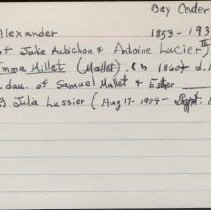 Bay Center
Alexander 1853-193
of Julie Aubichon & Antoine Lucier II)
Emma Millet (Mallet). (b 1860? d.
dau. of Samuel Mallet & Esther
g Jula Lussier (Aug 17-1904- Sept.